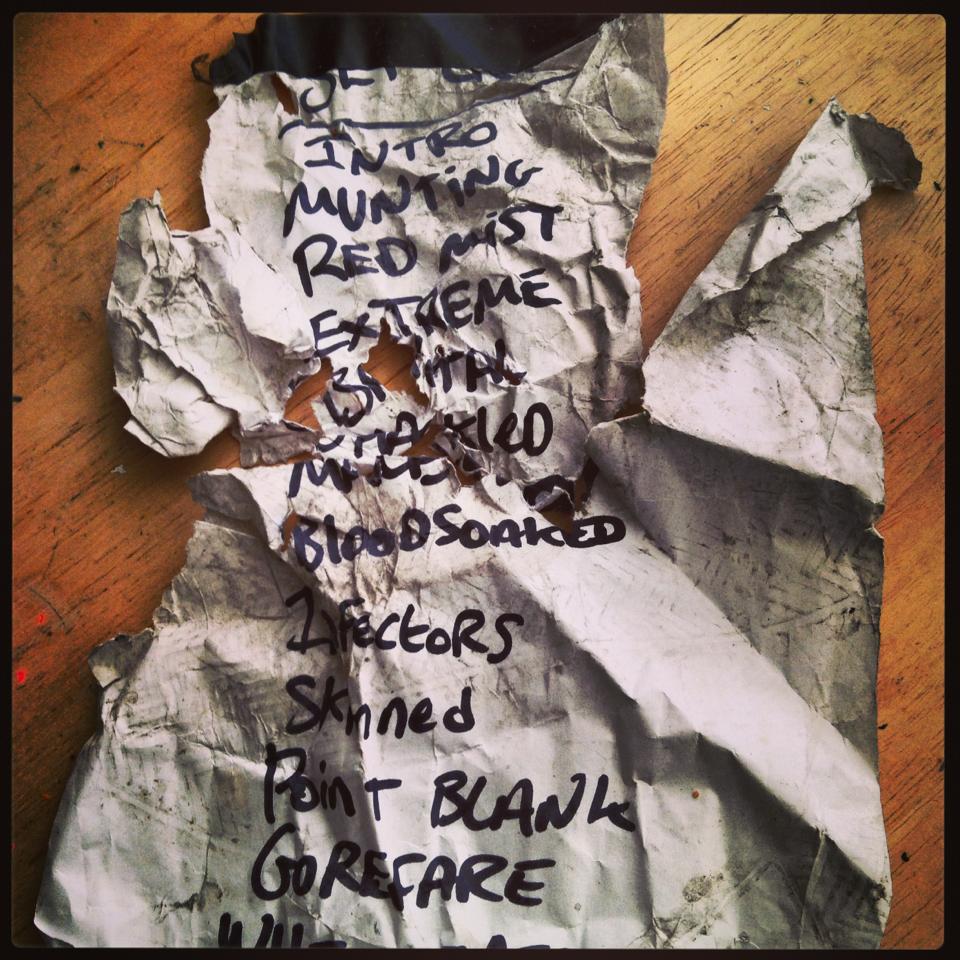 SET
INTRO
MUNTING
RED MIST
EXTREME
SHACKlED
BlOODSOAKED
INFECtoRS
Skinned
Point BLANk
GOREFARE